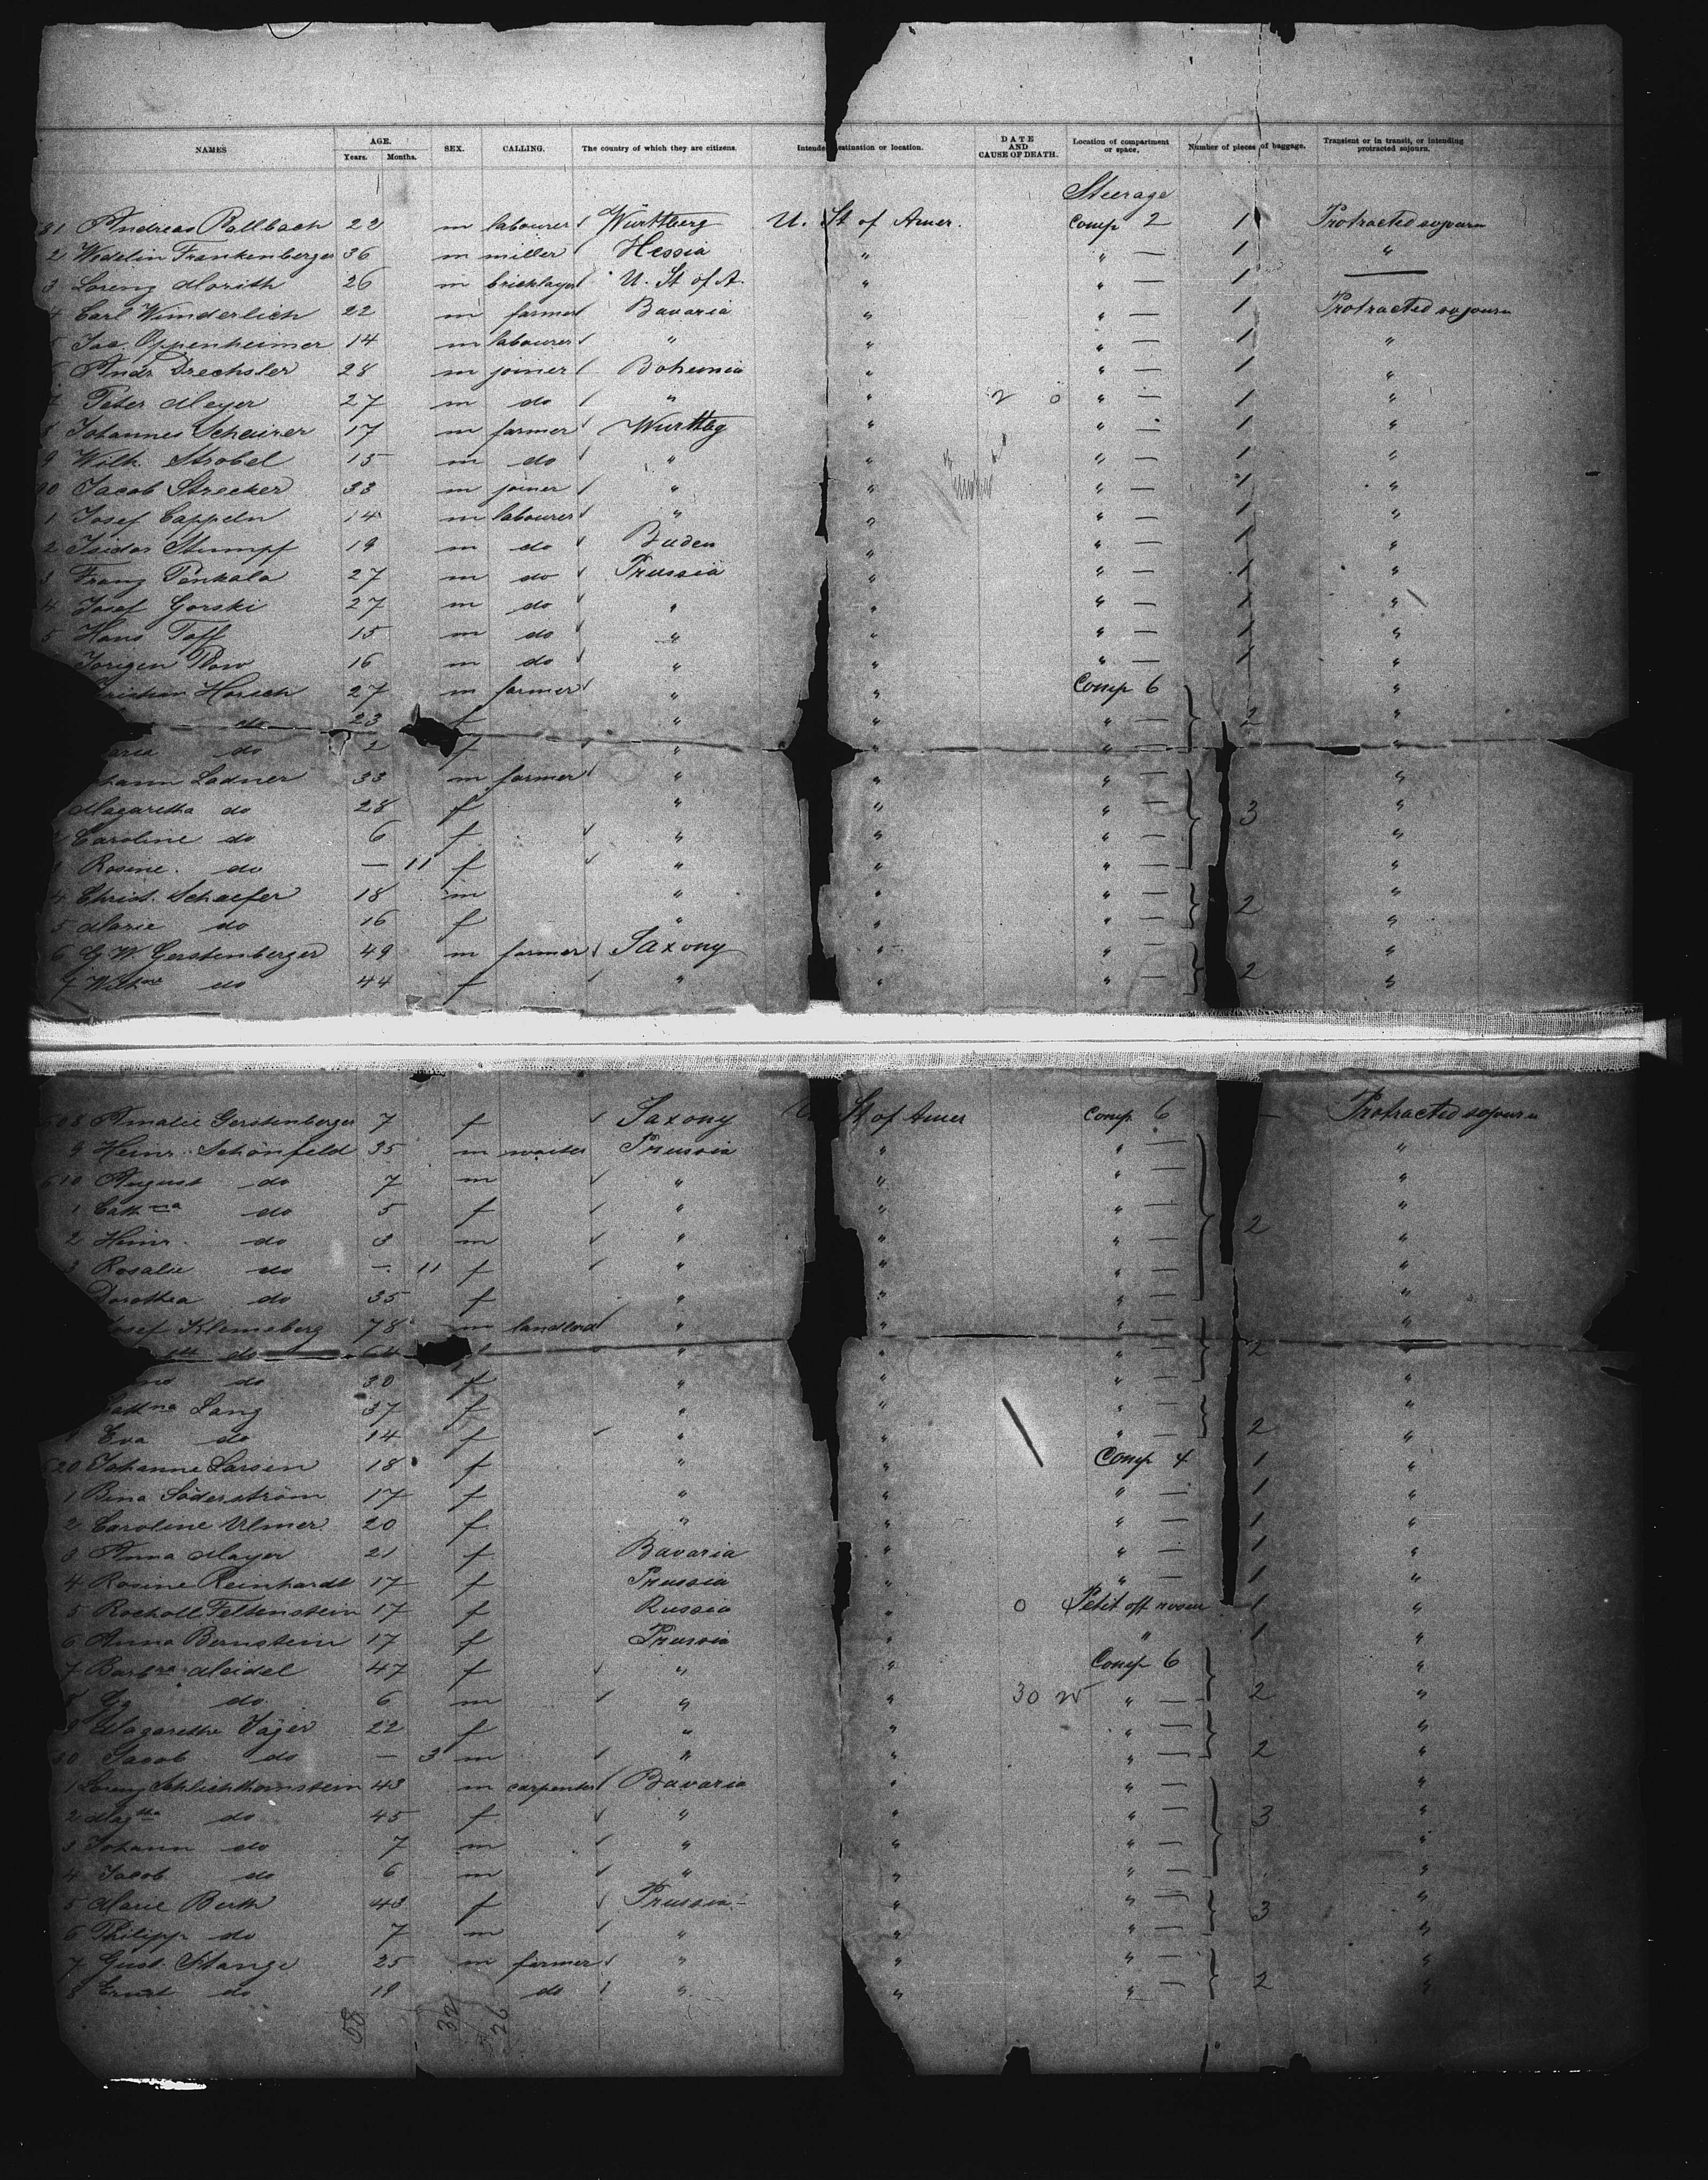 NAMES AGE. Years. Months. SEX. CALLING. The country of which they are citizens. Intende estination or location. DATE AND CAUSE OF DEATH. Location of compartment or space. Number of pieces of baggage. Transient or in transit, or intending protracted sojourn.
Steerage
81 Andreas Rallbach 22 m labourer Württberg U. St of Amer. Comp 2 1 Protracted sojourn
2 Wedelin Frankenberger 36 m miller Hessia " " — 1 "
3 Lorenz Morith 26 m bricklayer U. St of A. " " — 1 —
4 Carl Wunderlich 22 m farmer Bavaria " " — 1 Protracted sojourn
5 Jac. Oppenheimer 14 m labourer " " " — 1 "
6 Andr Drechsler 28 m joiner Bohemia " " — 1 "
7 Peter Meyer 27 m do " " 2 0 " — 1 "
8 Johannes Schairer 17 m farmer Wurttbg " " — 1 "
9 Wilh. Strobel 15 m do " " " — 1 "
90 Jacob Strecker 33 m joiner " " " — 1 "
1 Josef Cappeln 14 m labourer " " " — 1 "
2 Isidor Stumpf 19 m do Baden " " — 1 "
3 Franz Pankala 27 m do Prussia " " — 1 "
4 Josef Gorski 27 m do " " " — 1 "
5 Hans Toff 15 m do " " " — 1 "
Jörigen Plow 16 m do " " " — 1 "
ristian Horsch 27 m farmer " " Comp 6 "
do 23 f " " " — 2 "
arie do 2 f " " " — "
hann Ladner 33 m farmer " " " — "
Magaretha do 28 f " " " — 3 "
2 Caroline do 6 f " " " — "
3 Rosine. do — 11 f " " " — "
4 Christ. Schaefer 18 m " " " — 2 "
5 Marie do 16 f " " " — "
6 G W. Gerstenberger 49 m farmer Saxony " " — "
7 Wilhne do 44 f " " " — 2 "
608 Amalie Gerstenberger 7 f Saxony St of Amer Comp. 6 — Protracted sojourn
9 Heinr. Schönfeld 35 m waiter Prussia " " — "
610 August do 7 m " " " — "
1 Cathna do 5 f " " " — "
2 Heinr. do 3 m " " " — 2 "
3 Rosalie do — 11 f " " " — "
Dorothea do 35 f " " " — "
osef Klemeberg 78 m landlord " " " — "
do 64 " " " — 2 "
do 30 f " " " — "
Cathna Lang 37 f " " " — "
9 Eva do 14 f " " " — 2 "
620 Johanne Larsen 18 f " " Comp 4 1 "
1 Bina Söderström 17 f " " " — 1 "
2 Caroline Ulmer 20 f " " " — 1 "
3 Anna Mayer 21 f Bavaria " " — 1 "
4 Rosine Reinhardt 17 f Prussia " " — 1 "
5 Rocholl Feltenstein 17 f Russia " 0 Petit off room 1 "
6 Anna Bernstein 17 f Prussia " " 1 "
7 Barbra Meidel 47 f " " Comp 6 "
8 Gg do 6 m " " 30 " — 2 "
9 Magarethe Jäger 22 f " " " — "
30 Jacob do — 3 m " " " — 2 "
1 Lorenz Schlichthornstein 43 m carpenter Bavaria " " — "
2 Magtha do 45 f " " " — 3 "
3 Johann do 7 m " " " — "
4 Jacob do 6 m " " " — "
5 Marie Berth 43 f Prussia " " — 3 "
6 Philipp do 7 m " " " — "
7 Gust. Stange 25 m farmer " " " — "
8 Ernst do 19 do " " " — 2 "
58 32 26